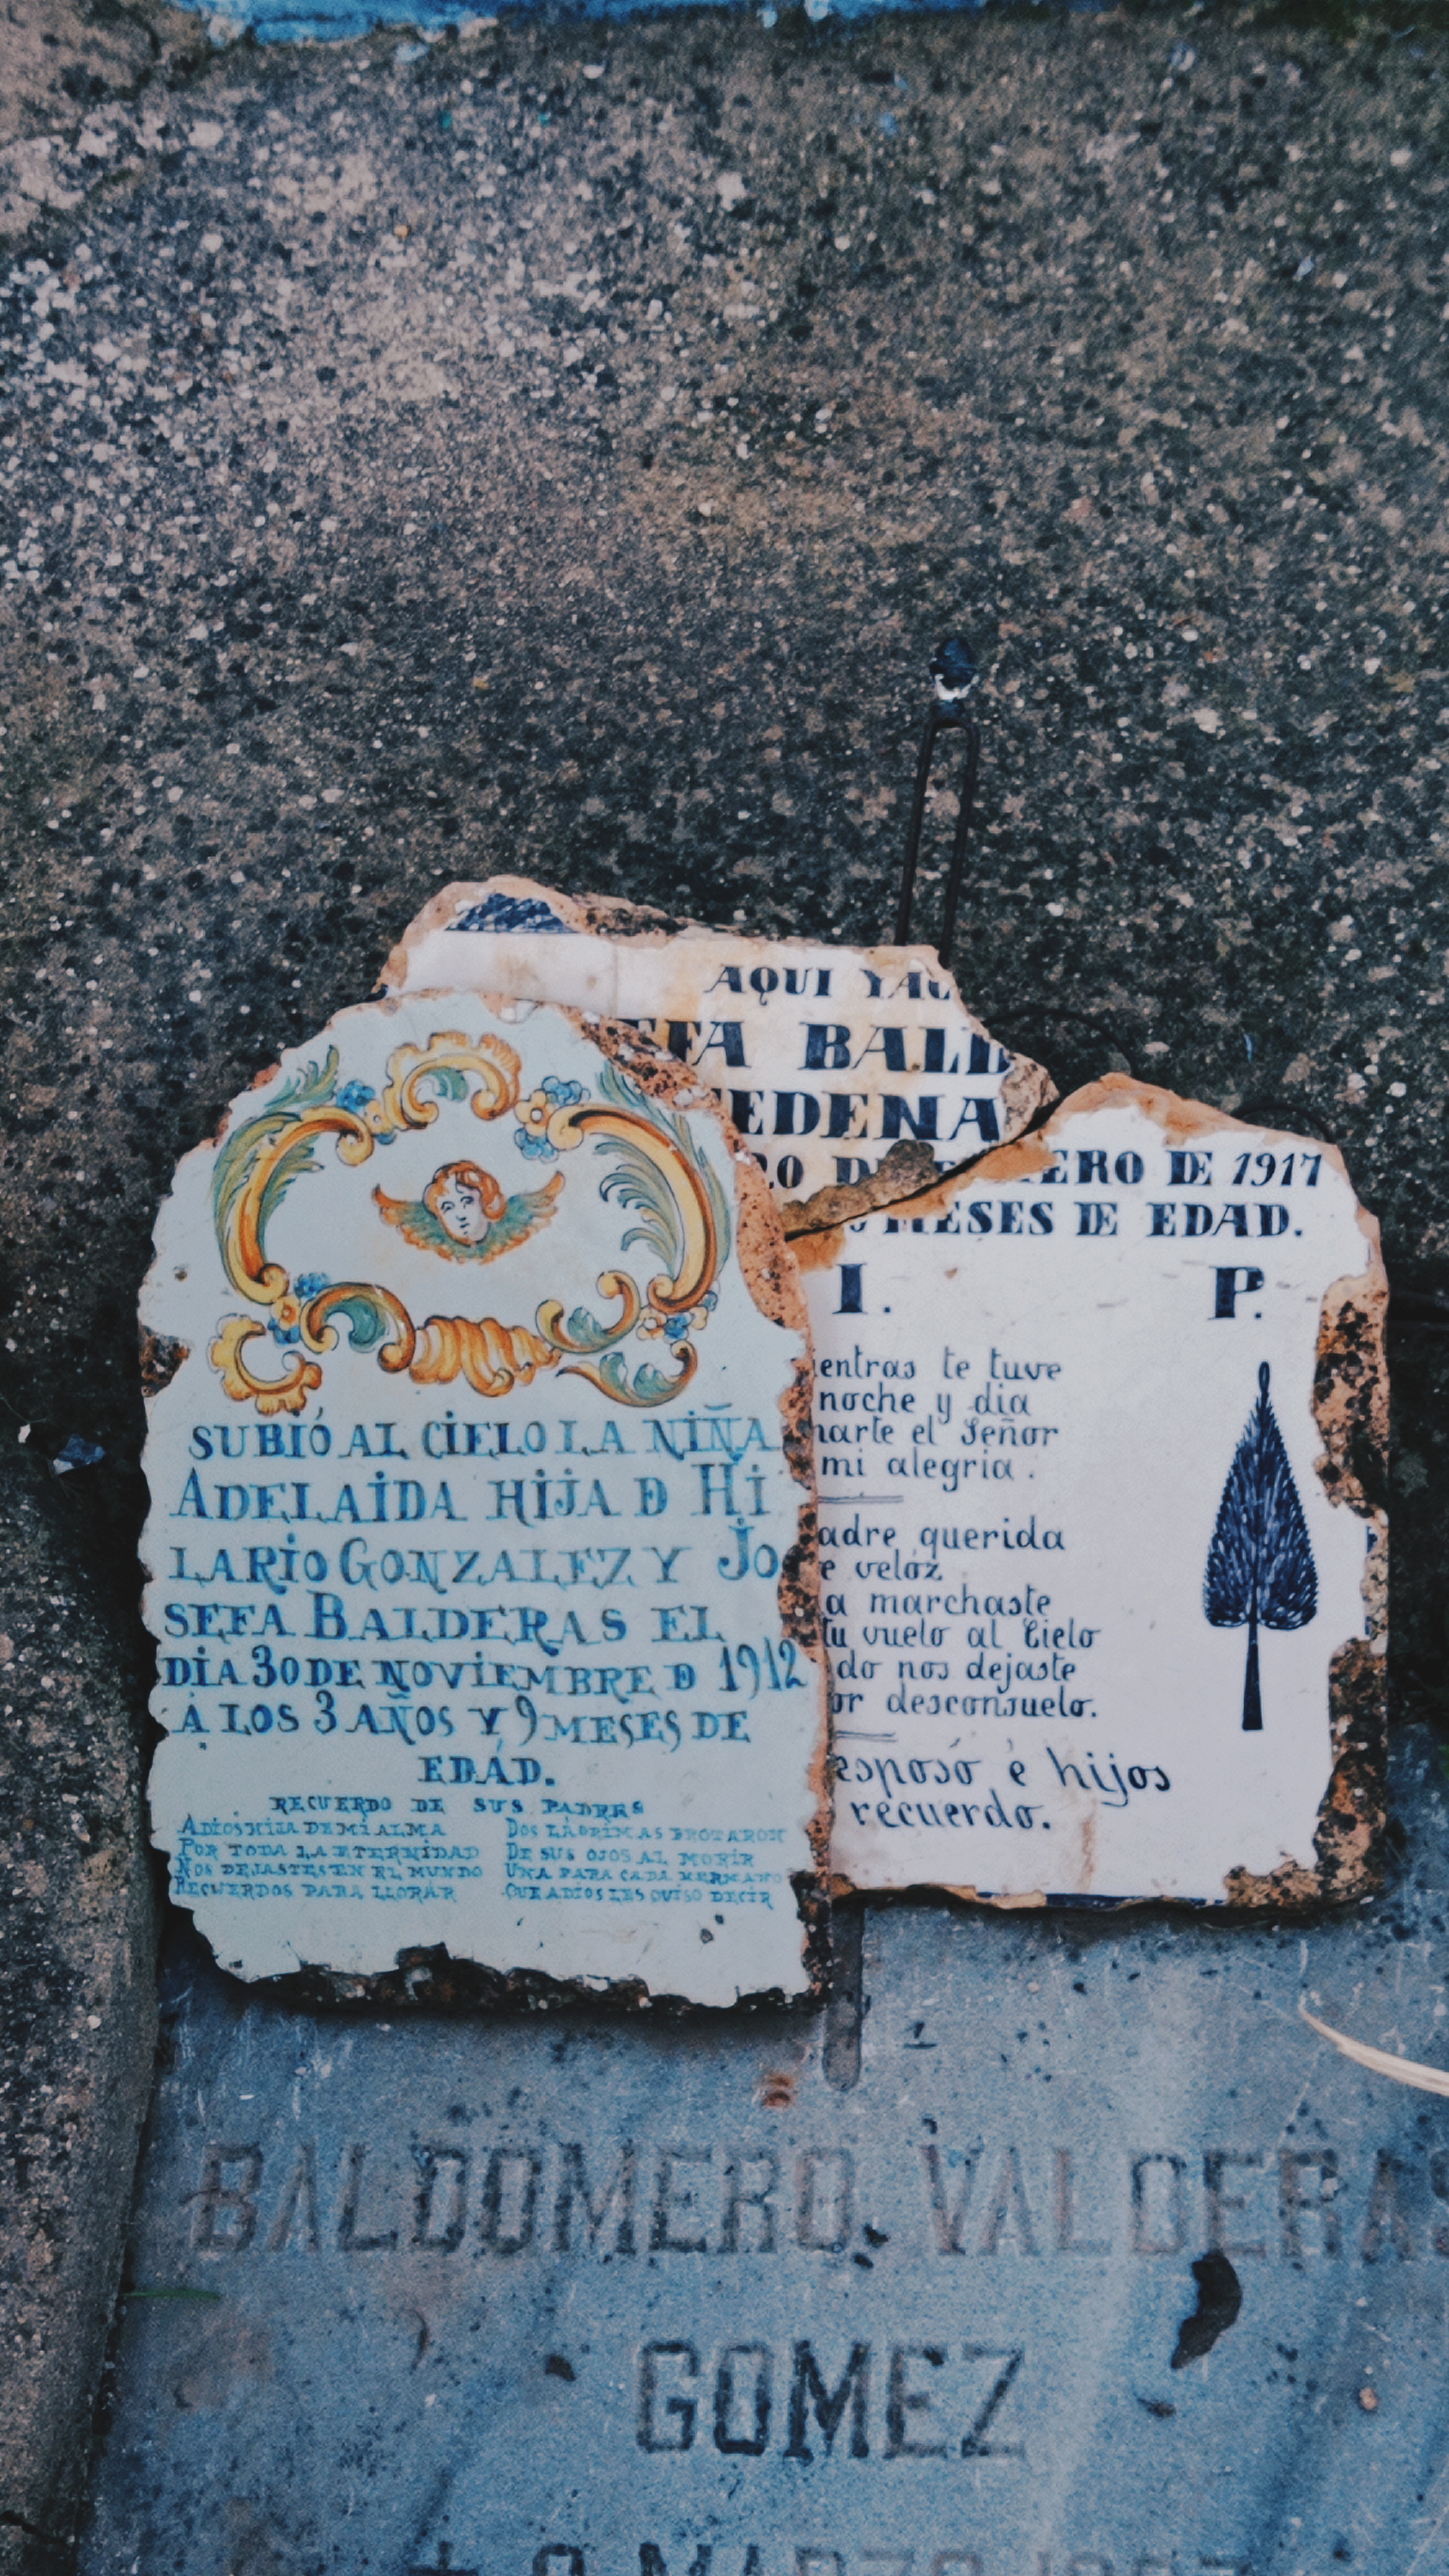 AQUI YAC
EFA BALD
EDENA
20 DE ERO DE 1917
MESES DE EDAD.
I. P.
entras te tuve
noche y dia
arte el Señor
mi alegria.
adre querida
e velóz
a marchaste
tu vuelo al Cielo
do nos dejaste
or desconsuelo.
esposó é hijos
recuerdo.
SUBIÓ AL CIELO LA NIÑA
ADELAIDA HIJA D HI
LARIO GONZALEZ Y JO
SEFA BALDERAS EL
DIA 30 DE NOVIEMBRE D 1912
Á LOS 3 AÑOS Y 9 MESES DE
EDÁD.
RECUERDO DE SUS PADRES
ADIOS HIJA DE MI ALMA
POR TODA LA ETERNIDAD
NOS DEJASTES EN EL MUNDO
RECUERDOS PARA LLORAR
DOS LÁGRIMAS BROTARON
DE SUS OJOS AL MORIR
UNA PARA CADA HERMANO
QUE ADIOS LES QUISO DECIR
BALDOMERO VALDERAS
GOMEZ
MARZO